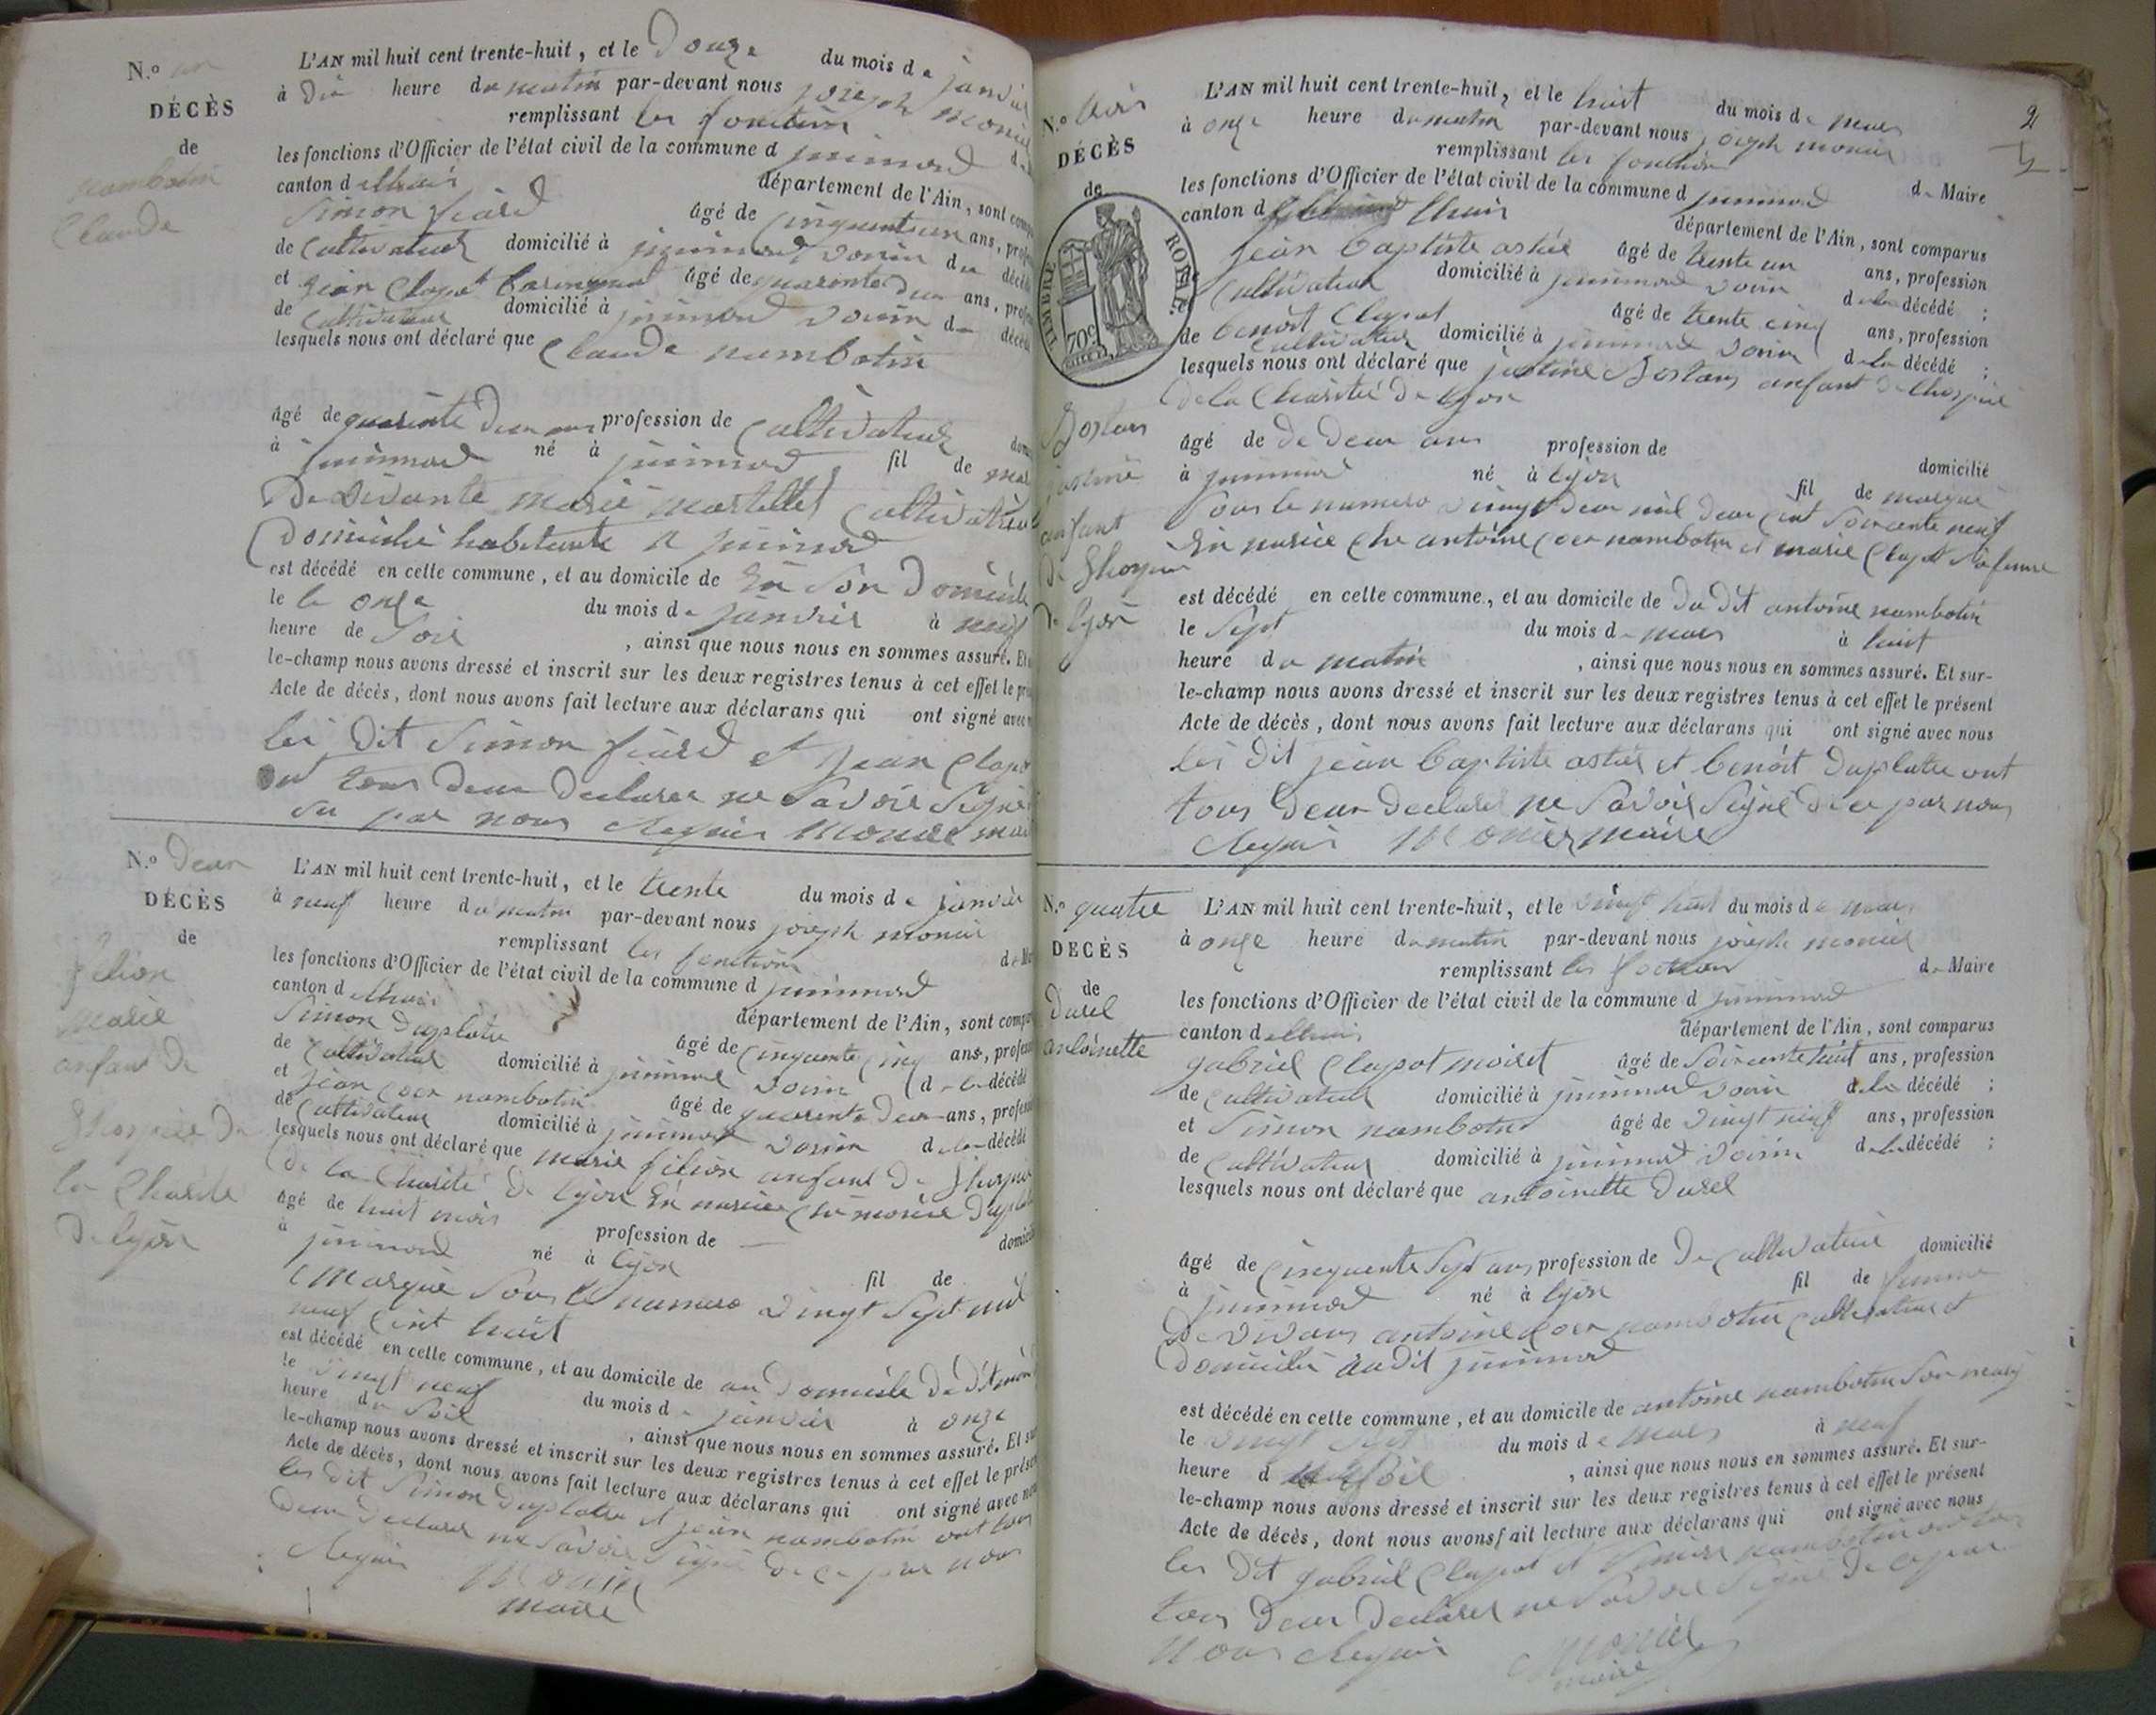 N.o un
DÉCÈS
de
nambotin
Claude
L'AN mil huit cent trente-huit, et le Douze du mois de janvier
à Dix heure du matin par-devant nous joseph monier
remplissant les fonctions
les fonctions d'Officier de l'état civil de la commune d
canton d département de l'Ain, sont comp
Simon fiard âgé de cinquante un ans, profes
de Cultivateur domicilié à voisin du décédé
et jean Clapot âgé de quarante deux ans, profes
de Cultivateur domicilié à voisin du décédé
lesquels nous ont déclaré que Claude nambotin
âgé de quarante deux ans profession de Cultivateur dom
à né à fil de
De vivante marie Cultivatrice
Domicilié habitante a
est décédé en cette commune, et au domicile de En Son Domicile
le le onze du mois de janvier à neuf
heure de Soir, ainsi que nous nous en sommes assuré. Et
le-champ nous avons dressé et inscrit sur les deux registres tenus à cet effet le pr
Acte de décès, dont nous avons fait lecture aux déclarans qui ont signé avec n
les dit Simon fiard et jean Clapot
ont tous deux declarer ne Savoir Signé
par nous Requis Monier mai
N.o Deux
DÉCÈS
de
filion
marie
enfant de
Lhospice De
la Charité
De lyon
L'AN mil huit cent trente-huit, et le trente du mois de janvier
à neuf heure du matin par-devant nous joseph monier
remplissant les fonctions de Ma
les fonctions d'Officier de l'état civil de la commune d
canton d département de l'Ain, sont compa
Simon Duplatre âgé de cinquante cinq ans, profess
de Cultivateur domicilié à voisin de la décédé
et jean nambotin âgé de quarante deux ans, profess
de Cultivateur domicilié à voisin de la décédé
lesquels nous ont déclaré que marie filion enfant De Lhospice
De la Charité De lyon En nourice
âgé de huit mois profession de — domicilié
à né à lyon fil de
marqué Sous le numero vingt Sept mil
neuf Cent huit
est décédé en cette commune, et au domicile de au Domicile
le vingt neuf du mois de janvier à onze
heure du Soir, ainsi que nous nous en sommes assuré. Et su
le-champ nous avons dressé et inscrit sur les deux registres tenus à cet effet le présen
Acte de décès, dont nous avons fait lecture aux déclarans qui ont signé avec nou
les dit Simon Duplatre et jean nambotin ont tous
Deux Declarer ne Savoir Signé De ce par nous
Requis Monier
maire
2
N.o trois
DÉCÈS
de
TIMBRE ROYAL.
70c.
Bostans
justine
enfant
De Lhospice
De lyon
L'AN mil huit cent trente-huit, et le huit du mois de mars
à onze heure du matin par-devant nous joseph monier
remplissant les fonctions
les fonctions d'Officier de l'état civil de la commune d de Maire
canton d département de l'Ain, sont comparus
jean baptiste astier âgé de trente un ans, profession
Cultivateur domicilié à voisin de la décédé ;
benoit Clapot âgé de trente cinq ans, profession
de Cultivateur domicilié à voisin de la décédé ;
lesquels nous ont déclaré que justine Bostans enfant de lhospice
De la Charité De lyon
âgé de De deux ans profession de domicilié
à né à lyon fil de marqué
Sous le numero vingt deux mil deux cent Soixante neuf
En nourice Che antoine nambotin et marie Clapot Sa femme
est décédé en cette commune, et au domicile de Du Dit antoine nambotin
le Sept du mois de mars à huit
heure du matin, ainsi que nous nous en sommes assuré. Et sur-
le-champ nous avons dressé et inscrit sur les deux registres tenus à cet effet le présent
Acte de décès, dont nous avons fait lecture aux déclarans qui ont signé avec nous
les Dit jean baptiste astier et benoit Duplatre ont
tous Deux Declarer ne Savoir Signé De ce par nous
Requis Monier maire
N.o quatre
DÉCÈS
de
Durel
antoinette
L'AN mil huit cent trente-huit, et le vingt huit du mois de mars
à onze heure du matin par-devant nous joseph monier
remplissant les de Maire
les fonctions d'Officier de l'état civil de la commune d
canton d département de l'Ain, sont comparus
gabriel Clapot moiret âgé de Soixante huit ans, profession
de Cultivateur domicilié à voisin de la décédé ;
et Simon nambotin âgé de vingt neuf ans, profession
de Cultivateur domicilié à voisin de la décédé ;
lesquels nous ont déclaré que antoinette Durel
âgé de Cinquante Sept ans profession de De Cultivatrice domicilié
à né à lyon fil de femme
De vivans antoine nambotin Cultivateur et
Domicilié audit
est décédé en cette commune, et au domicile de antoine nambotin Son mary
le vingt Sept du mois de mars à neuf
heure d Soir, ainsi que nous nous en sommes assuré. Et sur-
le-champ nous avons dressé et inscrit sur les deux registres tenus à cet effet le présent
Acte de décès, dont nous avons fait lecture aux déclarans qui ont signé avec nous
les Dit gabriel Clapot et Simon nambotin ont
tous Deux Declarer ne Savoir Signé De ce par
nous Requis Monier
maire